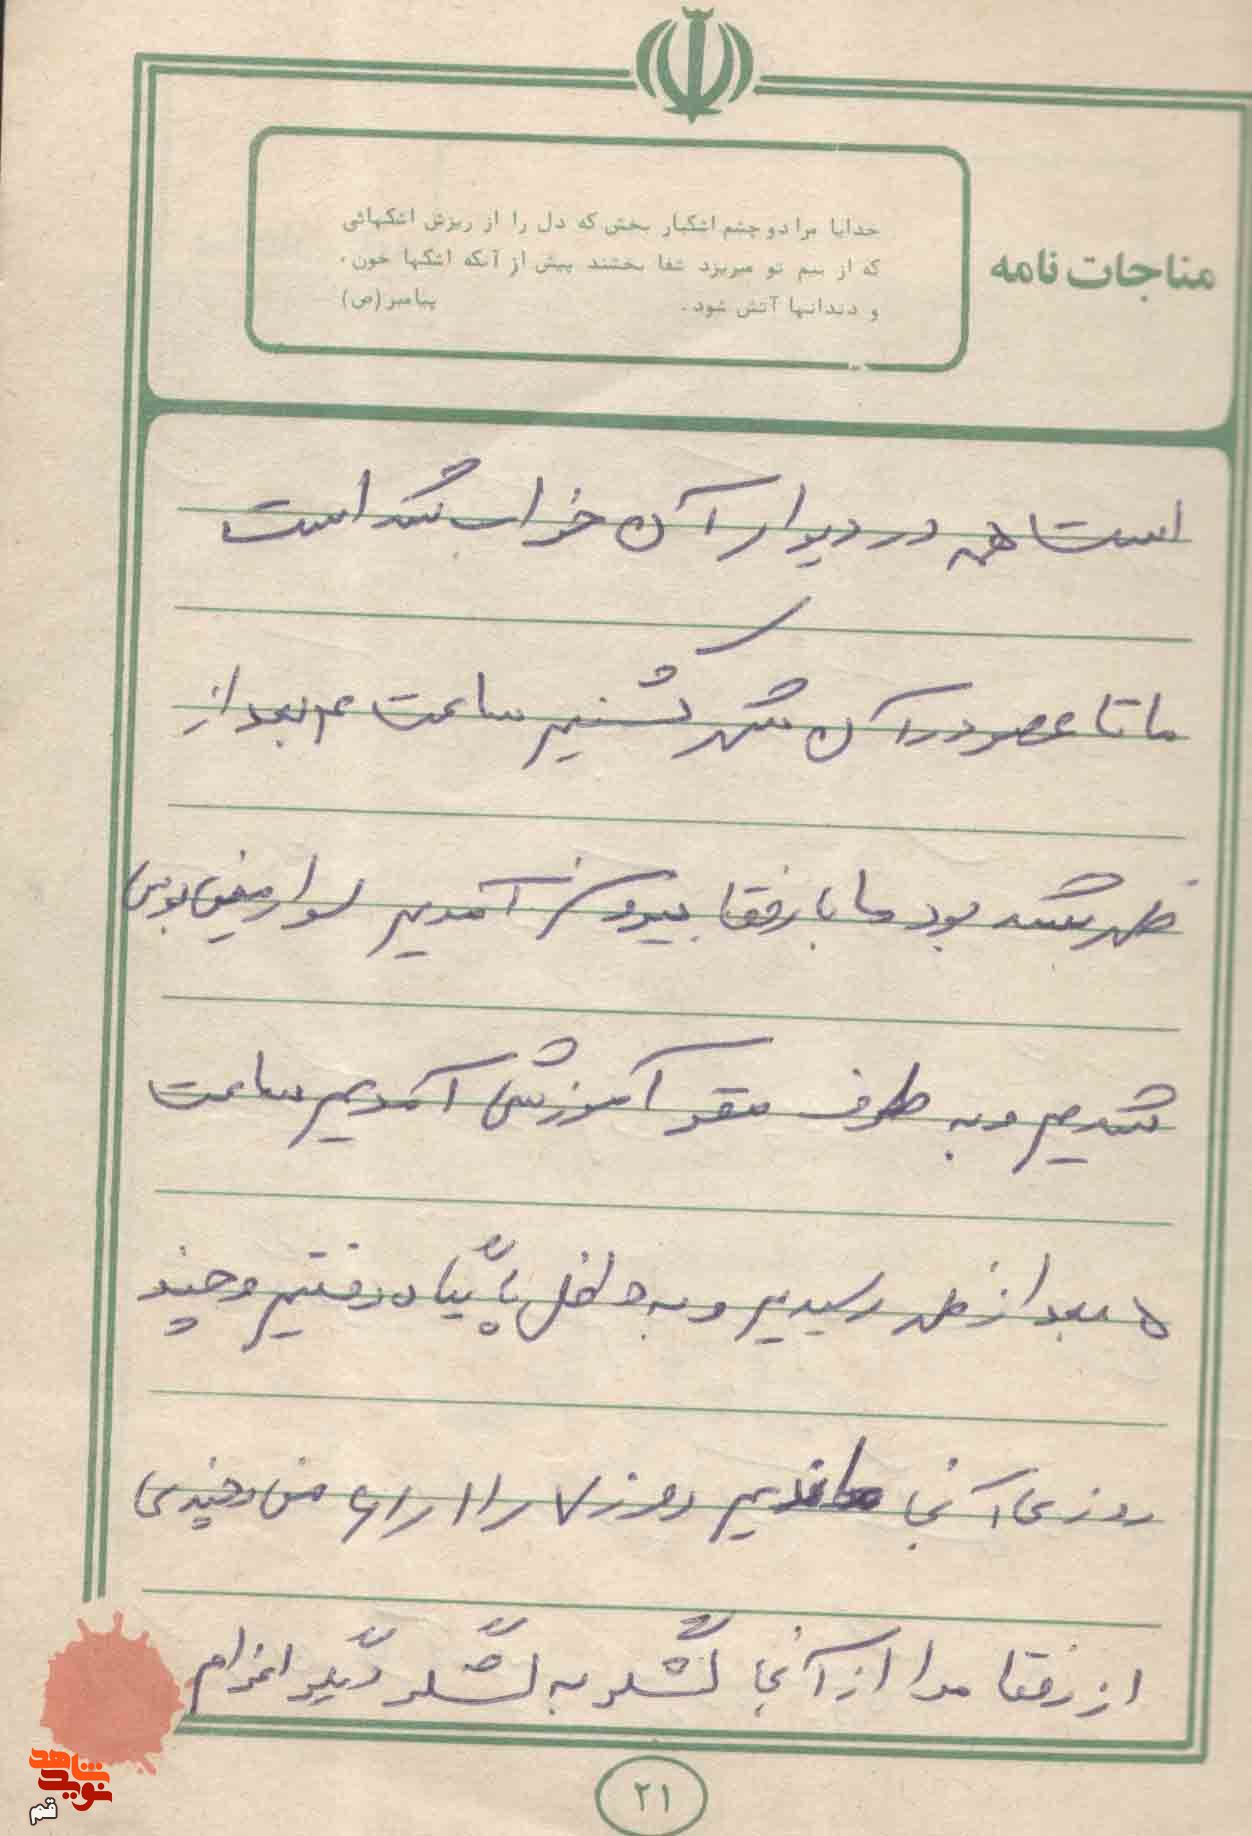 مناجات نامه
خدایا مرا دو چشم اشکبار بخش که دل را از ریزش اشکهائی
که از بیم تو میریزد شفا بخشند پیش از آنکه اشکها خون،
و دندانها آتش شود. پیامبر (ص)
است همه در دیوار آن خراب شده است
ما تا عصر در آن شهر گشتیم ساعت ۴ بعد از
ظهر شده بود ما با رفقا بیرون آمدیم سوار مینی بوس
شدیم و به طرف مقر آموزشی آمدیم ساعت
۵ بعد از ظهر رسیدیم و به داخل رفتیم و چند
روزی آنجا ماندیم روز ۷ را ۱۱ را ۶ من و چندی
از رفقا مرا از آنجا لشگر به لشگر دیگر اعزام
۲۱
شاهد
نوید
قم